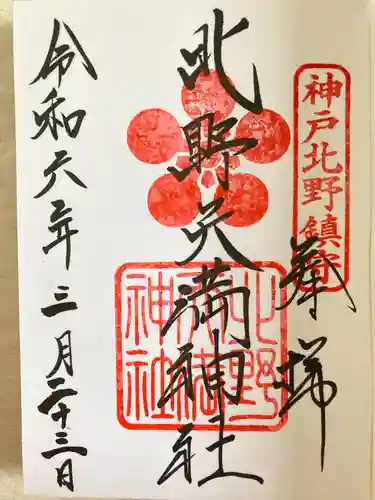 神戸北野鎮守
奉拝
北野天満神社
北野
天満
神社
令和六年三月二十三日